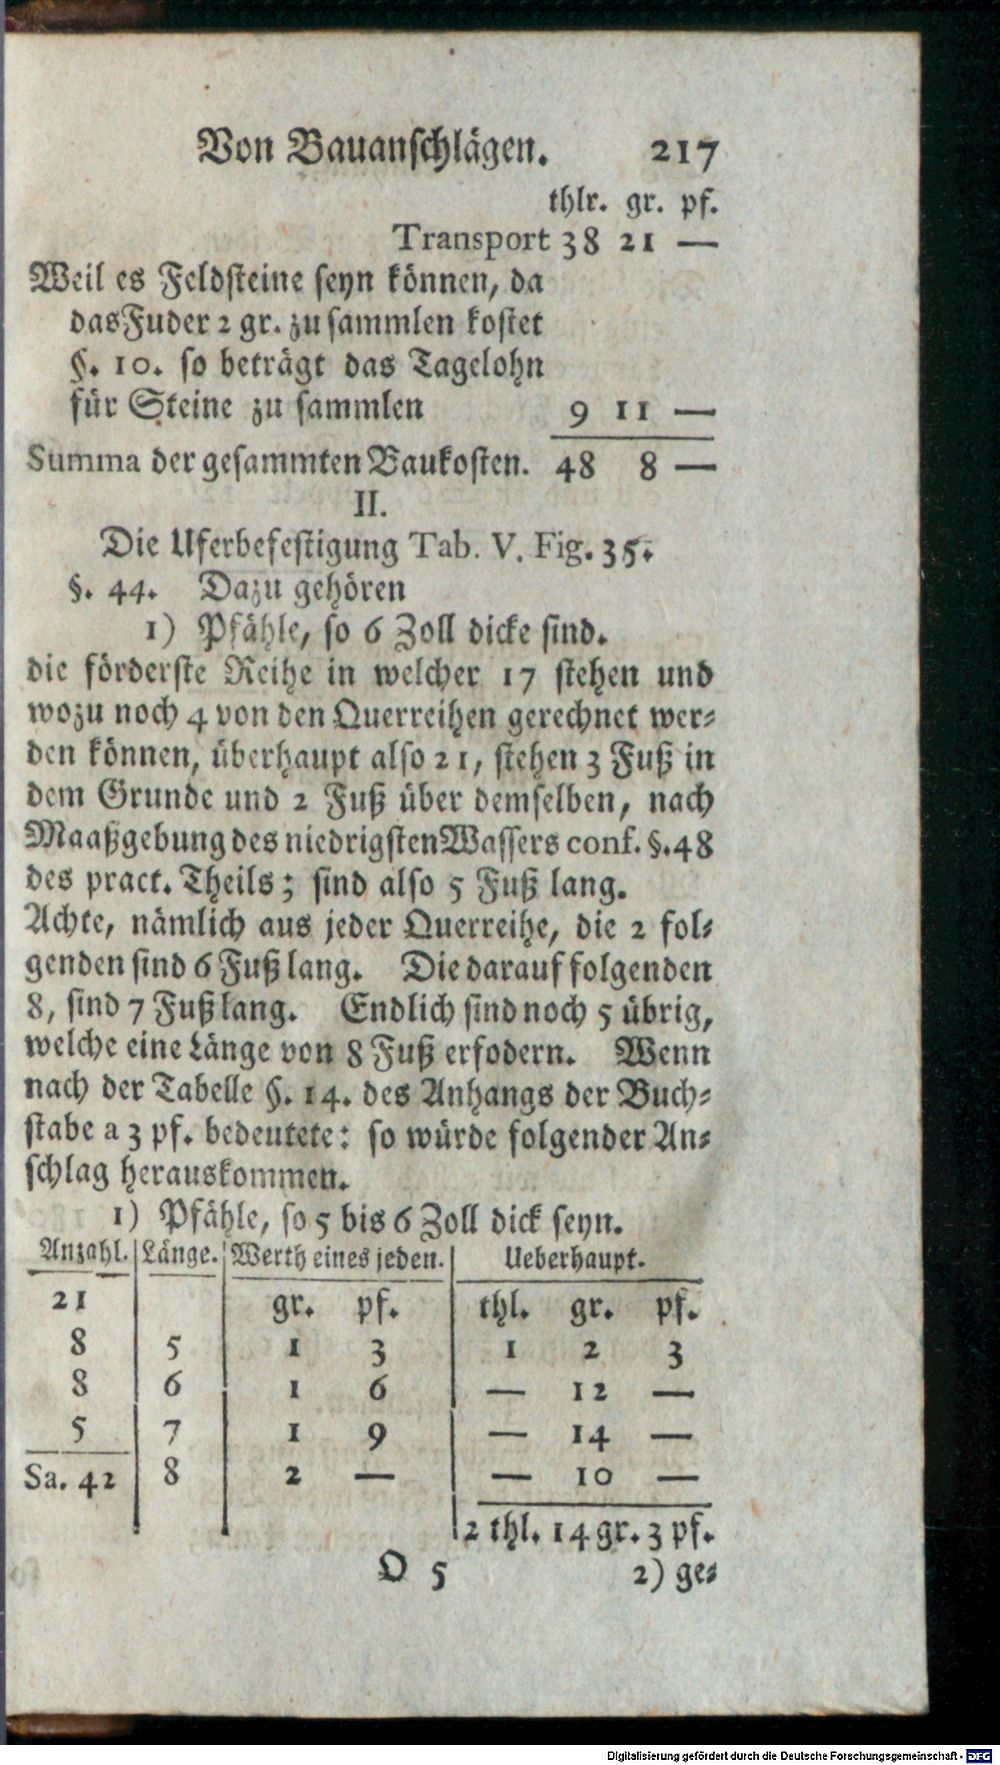 Von Bauanschlägen. 217
thlr. gr. pf.
Transport 38 21 —
Weil es Feldsteine seyn können, da
das Fuder 2 gr. zu sammlen kostet
§. 10. so beträgt das Tagelohn
für Steine zu sammlen 9 11 —
Summa der gesammten Baukosten. 48 8 —
II.
Die Uferbefestigung Tab. V. Fig. 35.
§. 44. Dazu gehören
1) Pfähle, so 6 Zoll dicke sind.
die förderste Reihe in welcher 17 stehen und
wozu noch 4 von den Querreihen gerechnet wer-
den können, überhaupt also 21, stehen 3 Fuß in
dem Grunde und 2 Fuß über demselben, nach
Maaßgebung des niedrigsten Wassers conf. §. 48
des pract. Theils; sind also 5 Fuß lang.
Achte, nämlich aus jeder Querreihe, die 2 fol-
genden sind 6 Fuß lang. Die darauf folgenden
8, sind 7 Fuß lang. Endlich sind noch 5 übrig,
welche eine Länge von 8 Fuß erfodern. Wenn
nach der Tabelle §. 14. des Anhangs der Buch-
stabe a 3 pf. bedeutete: so würde folgender An-
schlag herauskommen.
1) Pfähle, so 5 bis 6 Zoll dick seyn.
Anzahl. Länge. Werth eines jeden. Ueberhaupt.
21 gr. pf. thl. gr. pf.
8 5 1 3 1 2 3
8 6 1 6 — 12 —
5 7 1 9 — 14 —
Sa. 42 8 2 — — 10 —
2 thl. 14 gr. 3 pf.
O 5 2) ge-
Digitalisierung gefördert durch die Deutsche Forschungsgemeinschaft - DFG